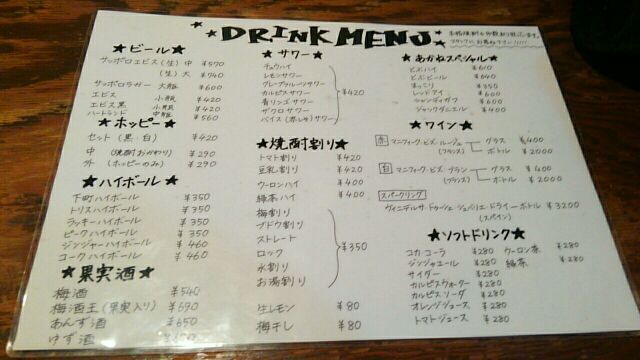 ★DRINK MENU★
★ビール★
サッポロエビス(生) 中 ¥570
(生) 大 ¥940
サッポロラガー 大瓶 ¥600
エビス 小瓶 ¥420
エビス黒 小瓶 ¥420
ハートランド 中瓶 ¥560
★ホッピー★
セット(黒・白) ¥420
中 (焼酎おかわり) ¥290
外 (ホッピーのみ) ¥290
★ハイボール★
下町ハイボール ¥350
トリスハイボール ¥350
ラッキーハイボール ¥350
ピークハイボール ¥350
ジンジャーハイボール ¥460
コークハイボール ¥460
★果実酒★
梅酒 ¥540
梅酒王(果実入り) ¥690
あんず酒 ¥650
ゆず酒
★サワー★
チュウハイ
レモンサワー
グレープフルーツサワー
カルピスサワー
青リンゴサワー
ザクロサワー
バイス(赤しそ)サワー
¥420
★焼酎割り★
トマト割り ¥420
豆乳割り ¥420
ウーロンハイ ¥400
緑茶ハイ ¥400
梅割り
ブドウ割り
ストレート
ロック
水割り
お湯割り
¥350
生レモン ¥80
梅干し ¥80
★あかねスペシャル★
ビズハイ ¥610
ビズビール ¥640
ほっこり ¥350
レッドアイ ¥640
シャンディガフ ¥640
ジャックダニエル ¥400
★ワイン★
赤 マニフィーク・ビズ・ルージュ グラス ¥400
(フランス) ボトル ¥2000
白 マニフィーク・ビズ・ブラン グラス ¥400
(フランス) ボトル ¥2000
スパークリング
ドライーボトル ¥3200
(スペイン)
★ソフトドリンク★
コカ・コーラ ¥280 ウーロン茶 ¥280
ジンジャエール ¥280 緑茶 ¥280
サイダー ¥280
カルピスウォーター ¥280
カルピスソーダ ¥280
オレンジジュース ¥280
トマトジュース ¥280